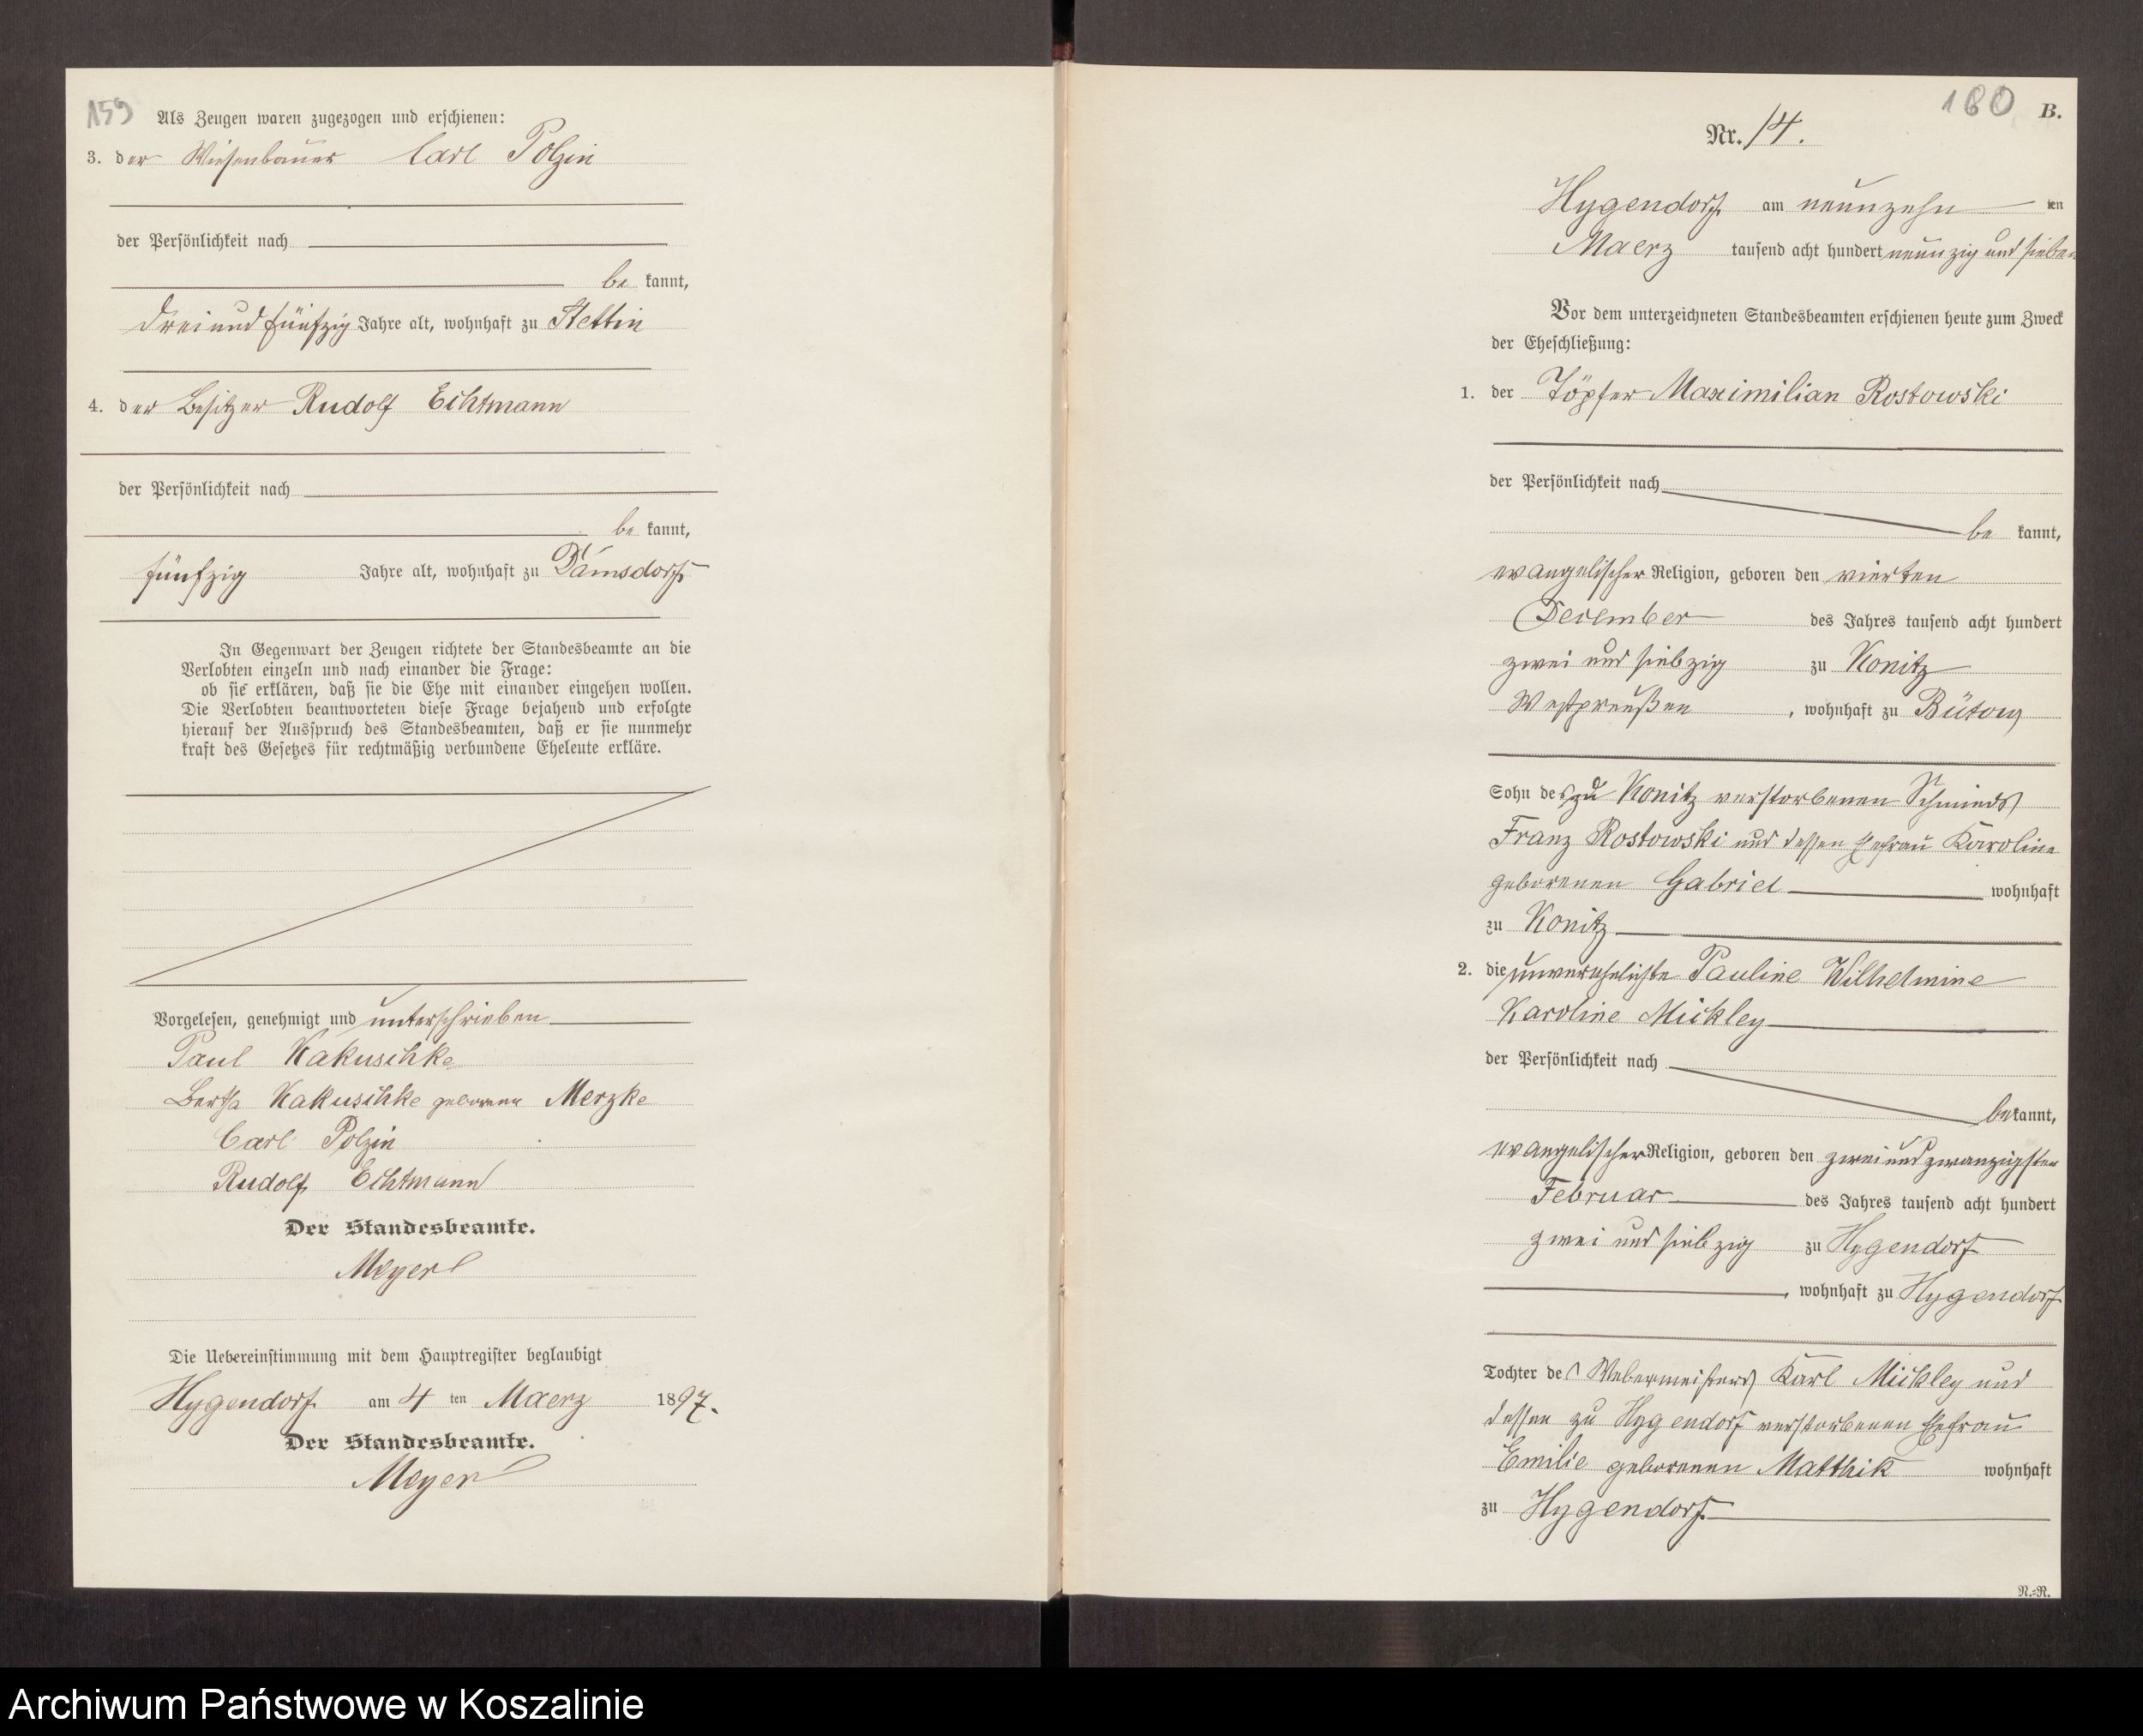 159
Als Zeugen waren zugezogen und erschienen:
3. der Wiesenbauer Carl Polzin
der Persönlichkeit nach
be kannt,
dreiundfünfzig Jahre alt, wohnhaft zu Stettin
4. der Besitzer Rudolf Echtmann
der Persönlichkeit nach
be kannt,
fünfzig Jahre alt, wohnhaft zu Damsdorf
In Gegenwart der Zeugen richtete der Standesbeamte an die
Verlobten einzeln und nach einander die Frage:
ob sie erklären, daß sie die Ehe mit einander eingehen wollen.
Die Verlobten beantworteten diese Frage bejahend und erfolgte
hierauf der Ausspruch des Standesbeamten, daß er sie nunmehr
kraft des Gesetzes für rechtmäßig verbundene Eheleute erkläre.
Vorgelesen, genehmigt und unterschrieben
Paul Kakuschke
Bertha Kakuschke geborene Merzke
Carl Polzin
Rudolf Echtmann
Der Standesbeamte.
Meyer
Die Uebereinstimmung mit dem Hauptregister beglaubigt
Hygendorf am 4 ten Maerz 1897.
Der Standesbeamte.
Meyer
160
B.
Nr. 14.
Hygendorf am neunzehn ten
Maerz tausend acht hundert neunzig und sieben
Vor dem unterzeichneten Standesbeamten erschienen heute zum Zweck
der Eheschließung:
1. der Töpfer Maximilian Rostowski
der Persönlichkeit nach
be kannt,
evangelischer Religion, geboren den vierten
December des Jahres tausend acht hundert
zwei und siebzig zu Konitz
Westpreußen, wohnhaft zu Bütow
Sohn des zu Konitz verstorbenen Schmieds
Franz Rostowski und dessen Ehefrau Karoline
geborenen Gabriel wohnhaft
zu Konitz
2. die unverehelichte Pauline Wilhelmine
Karoline Mickley
der Persönlichkeit nach
bekannt,
evangelischer Religion, geboren den zweiundzwanzigsten
Februar des Jahres tausend acht hundert
zwei und siebzig zu Hygendorf
, wohnhaft zu Hygendorf
Tochter des Webermeisters Karl Mickley und
dessen zu Hygendorf verstorbenen Ehefrau
Emilie geborenen Matthik wohnhaft
zu Hygendorf
N.=R.
Archiwum Państwowe w Koszalinie